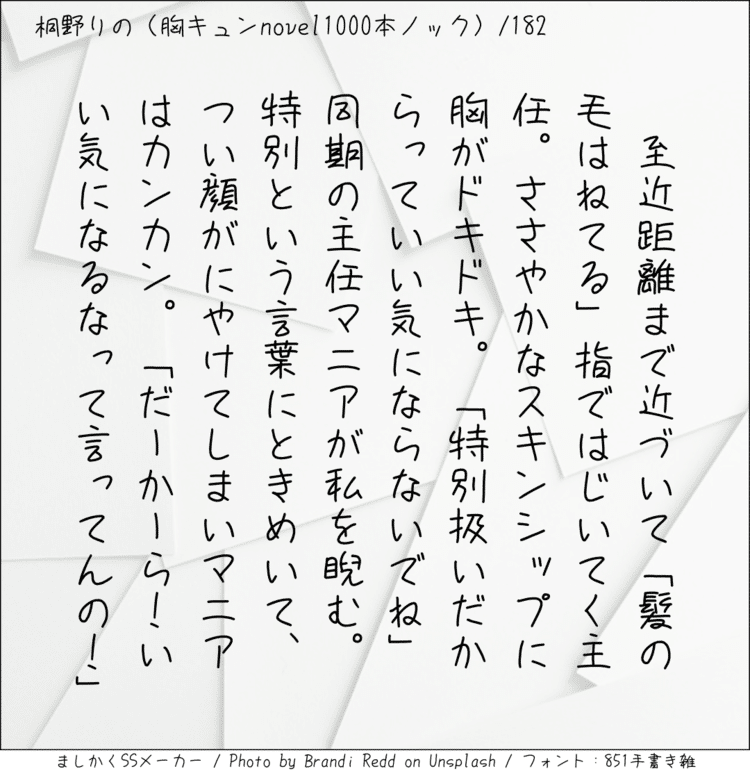 桐野りの（胸キュンnovel1000本ノック）/182
　至近距離まで近づいて「髪の
毛はねてる」指ではじいてく主
任。ささやかなスキンシップに
胸がドキドキ。「特別扱いだか
らっていい気にならないでね」
同期の主任マニアが私を睨む。
特別という言葉にときめいて、
つい顔がにやけてしまいマニア
はカンカン。「だーかーら！い
い気になるなって言ってんの！」
ましかくSSメーカー / Photo by Brandi Redd on Unsplash / フォント：851手書き雑